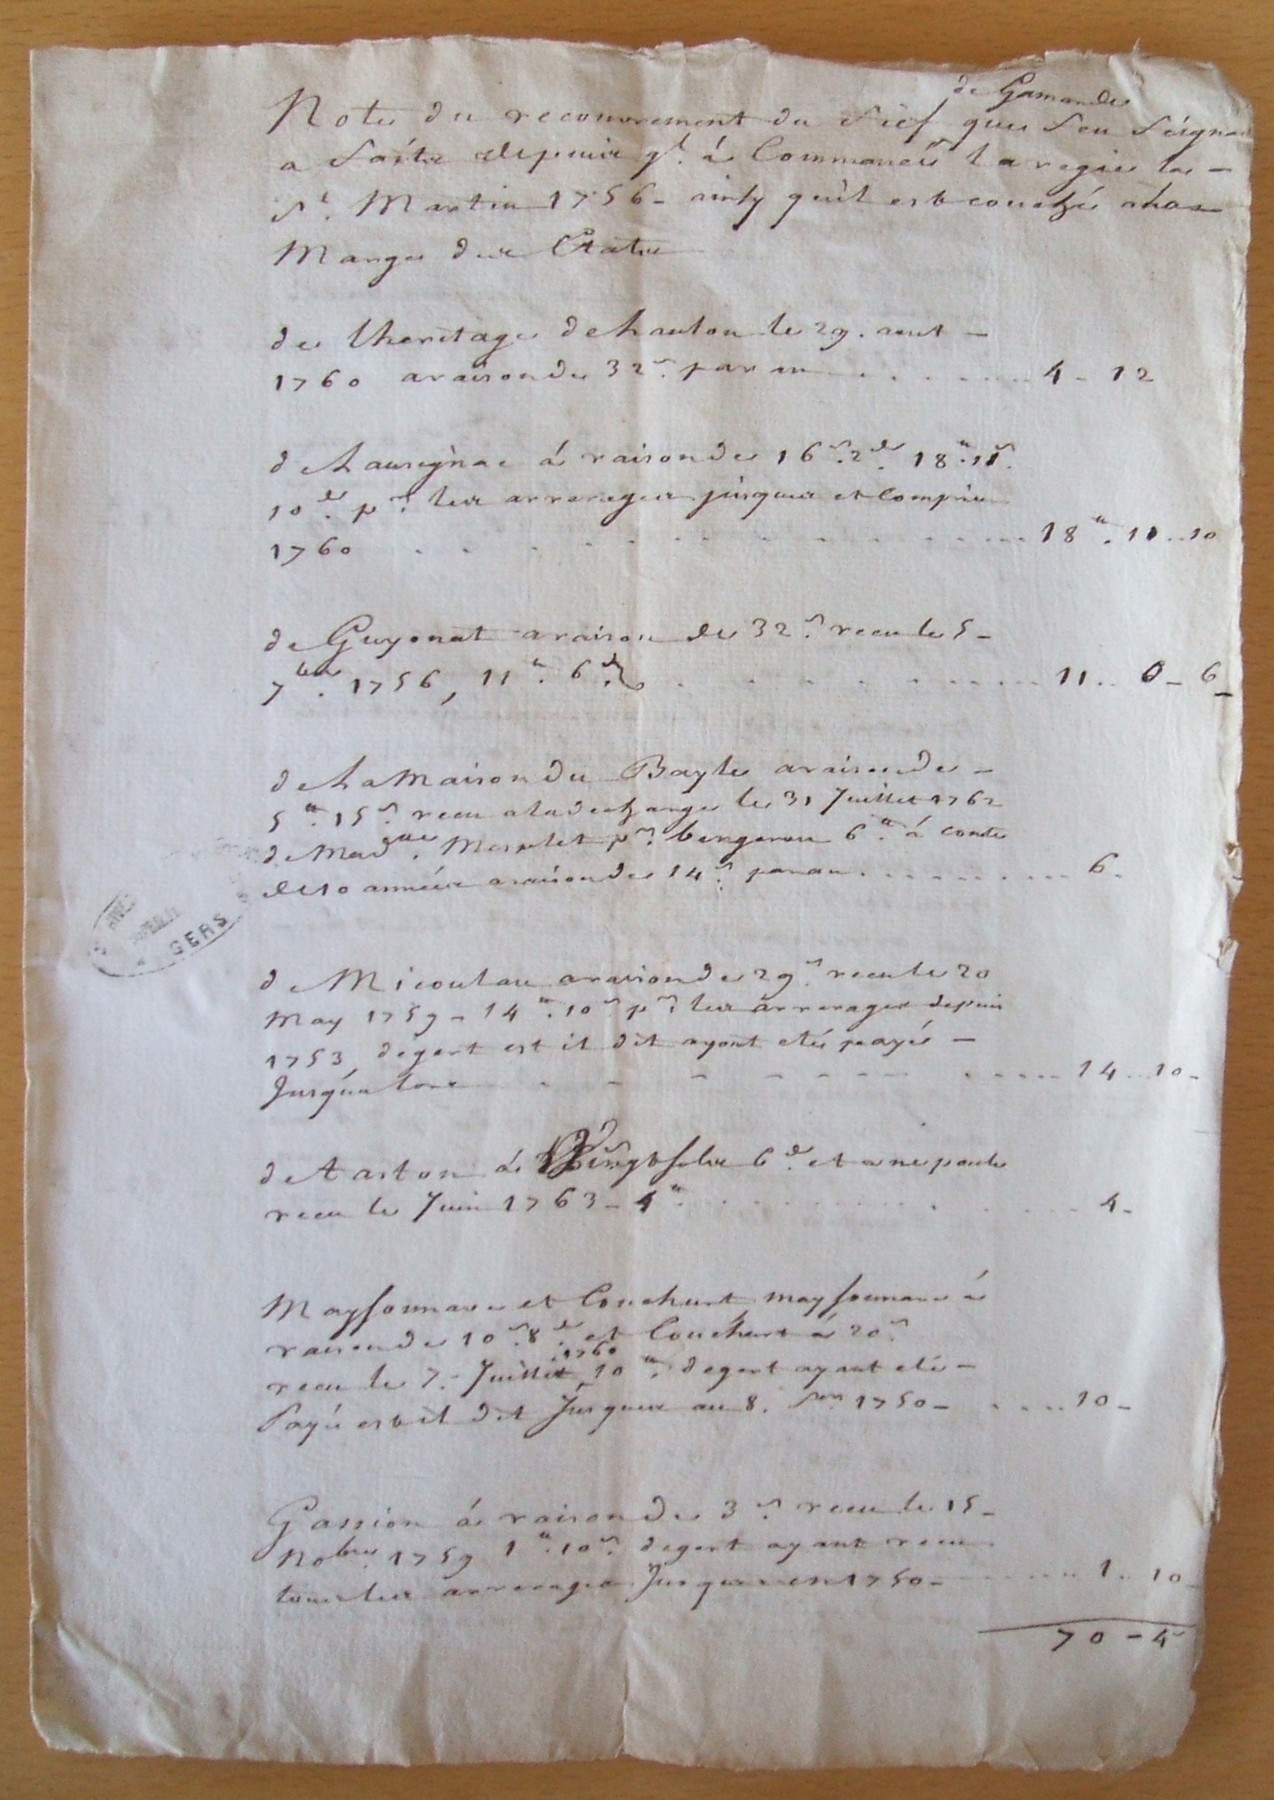 de Gamarde
Note du recouvrement du fief que feu Seigna
a faite depuis qt. à Commancé la regie la -
St. Martin 1756 - ainsy quil est couché a la
Marge des Etats
de lheritage de hauton le 29. aout -
1760 a raison de 32s. par an . . . . . . . 4 - 12
de Lausegnac á raison de 16s. 2d. 18ll. 11s.
10d. pr. les arrerages jusques et Compris
1760 . . . . . . . . . . . . . 18ll. 11 .. 10
de Guyonat a raison de 32s. recu le 5 -
7bre. 1756, 11ll. 6d. . . . . . . . . . 11 .. 0 - 6 -
de La Maison du Bayle a raison de -
5ll. 15s. recu a la decharge le 31 Juillet 1762
de Madlle. Mesplet pr. bergerou 6ll. á conte
de 10 années a raison de 14s. par an . . . . . . . . 6 -
de Micoulau a raison de 29s. recu le 20
May 1759 - 14ll. 10s. pr. les arrerages depuis
1753, degert est il dit ayant eté payé -
Jusqua lors . . . . . . . . . . 14 .. 10 -
de Taston á Vingt sols 6d. et une poule
recu le Juin 1763 - 4ll. . . . . . . . . . 4 -
Maysonnave et Couchurt maysonnave á
raison de 10s. 8d. et Couchurt á 20s.
1760
recu le 7. Juillet, 10ll. degert ayant eté -
Payé est il dit Jusques au 8. 1750 - . . . . 10 -
Gassion á raison de 3s. recu le 15 -
Nobre. 1759 1ll. 10s. degert ayant recu
tous les arrerages Jusques en 1750 - . . . . . 1 .. 10 -
70 - 4
GERS